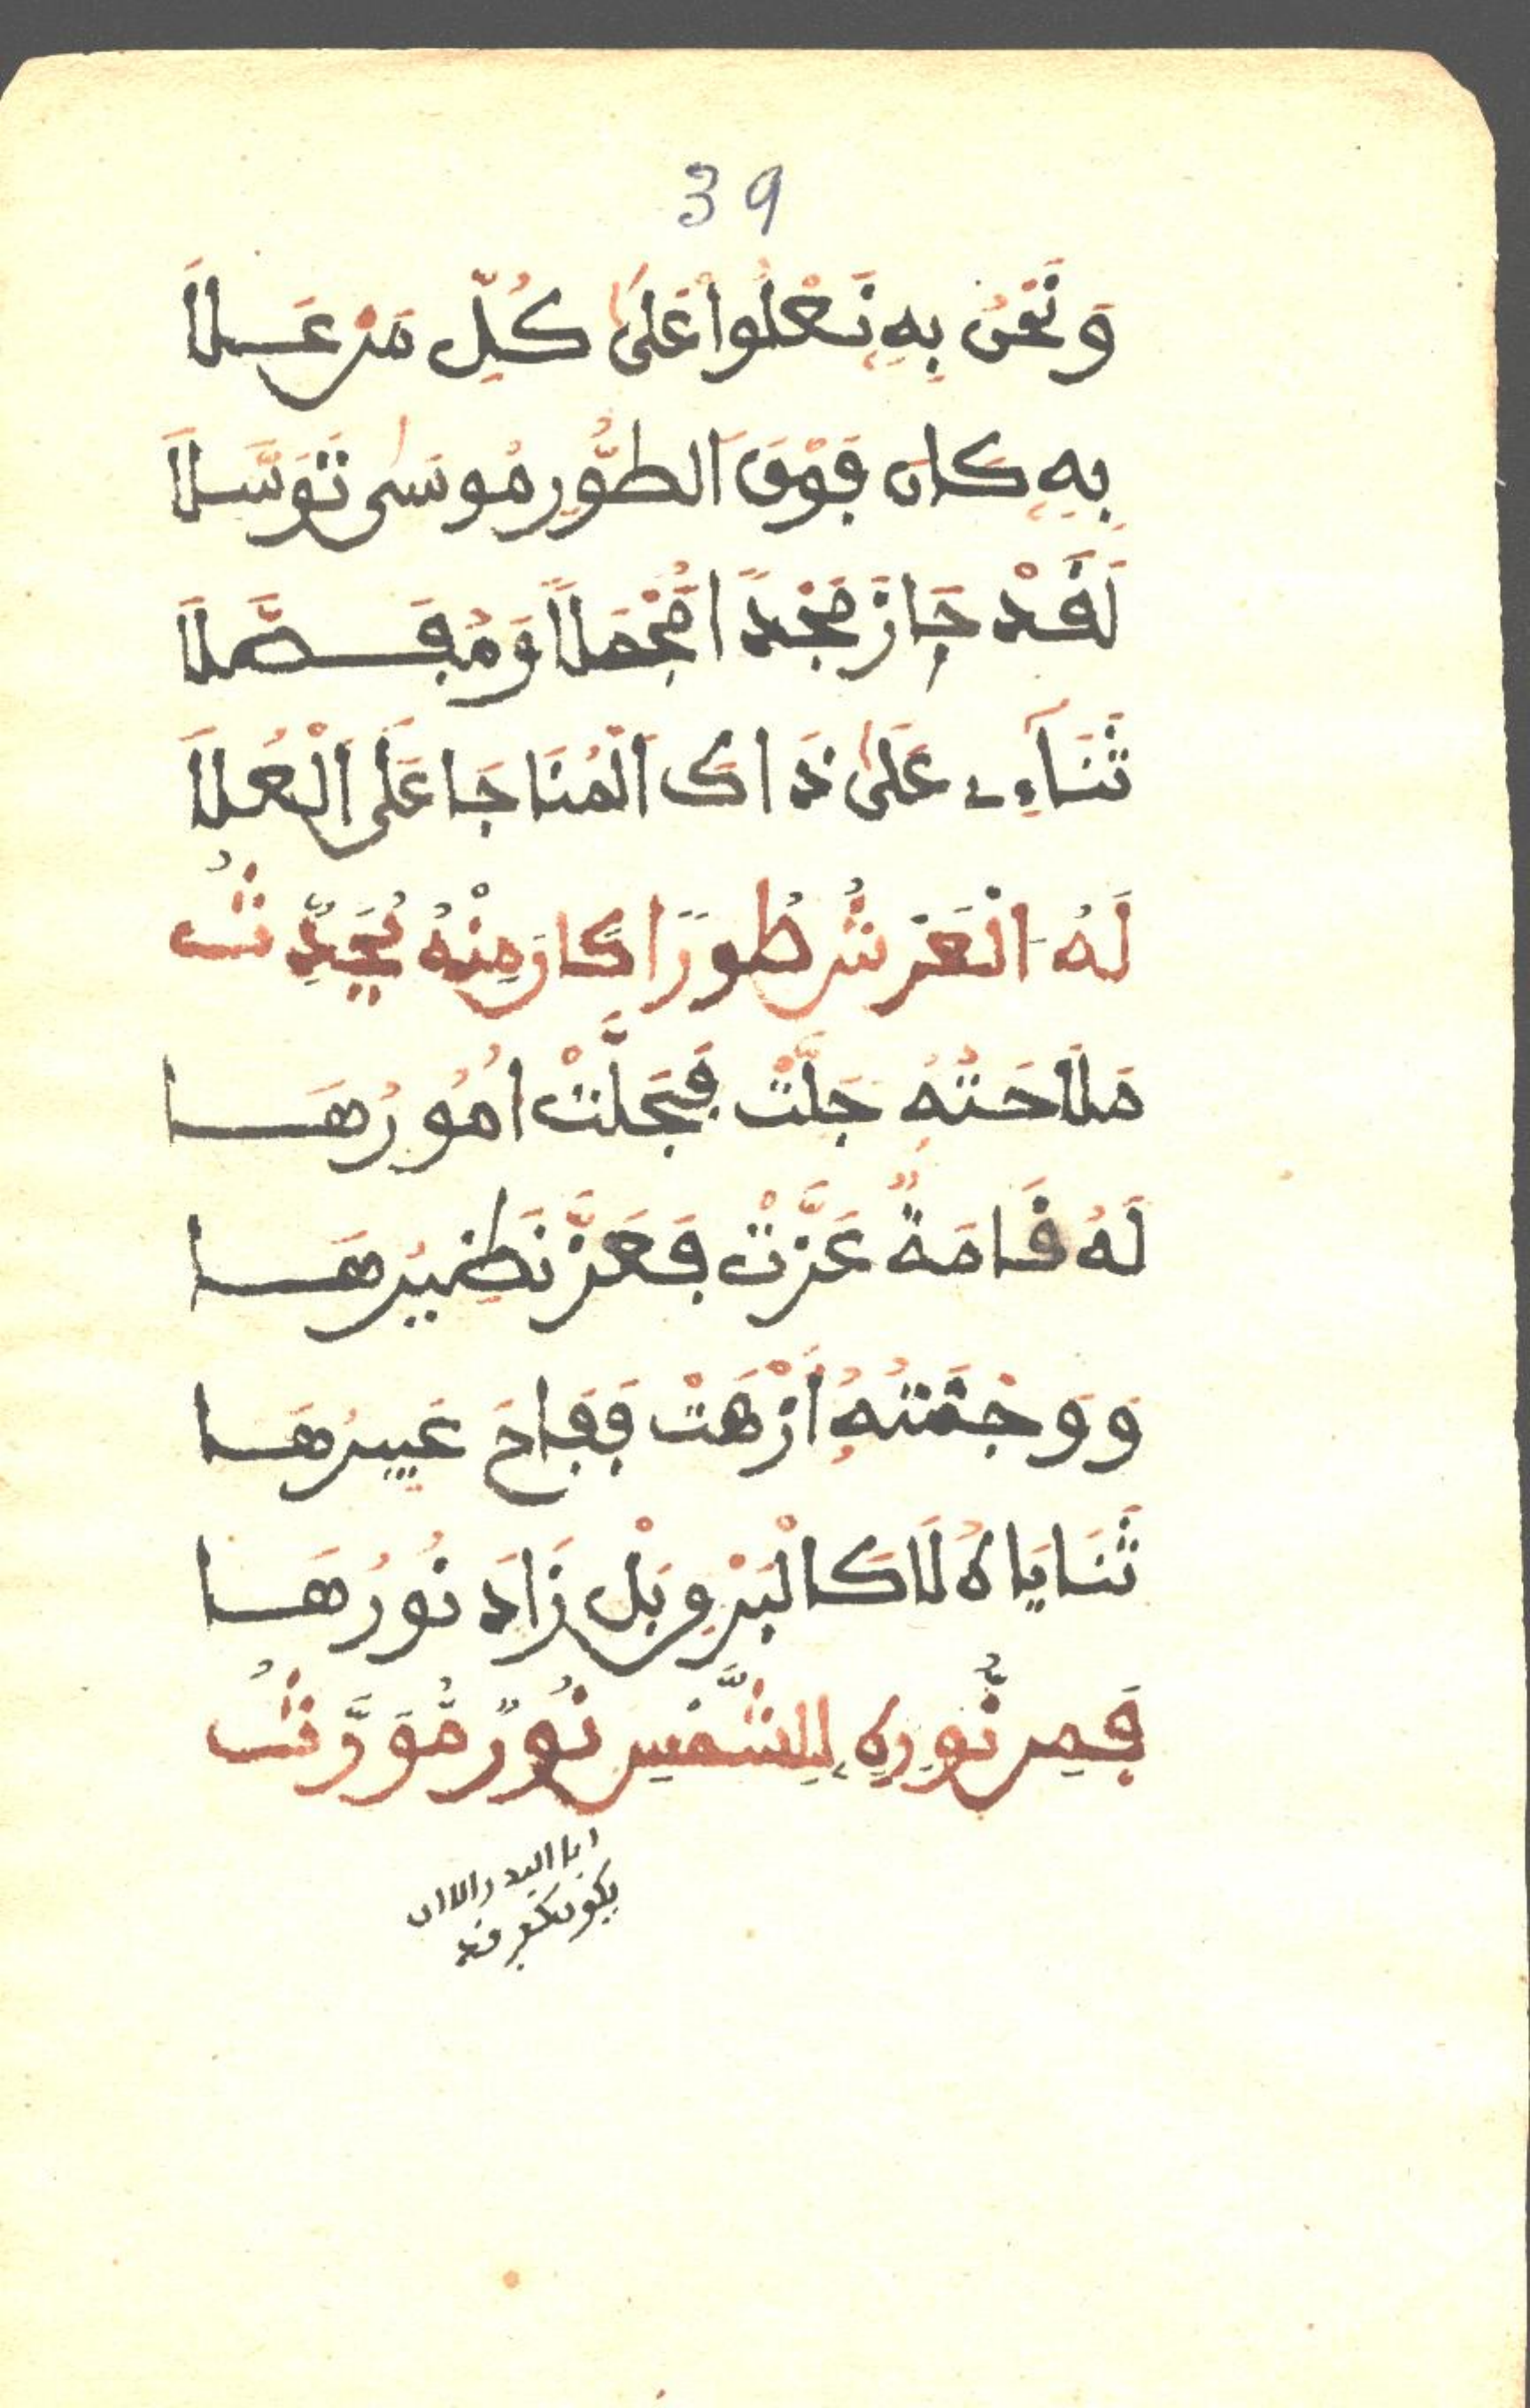 39
وَنَحْنُ بِهِ نَعْلُوا عَلَىٰ كُلِّ مَنْ عَلَا
بِهِ كَانَ فَوْقَ الطُّورِ مُوسَىٰ تَوَسَّلَا
لَقَدْ حَازَ مَجْدًا مُّجْمَلًا وَمُفَصَّلَا
ثَنَآءِے عَلَىٰ ذَاكَ الْمُنَاجَا عَلَى الْعُلَا
لَهُ الْعَرْشُ طُورًا كَانَ مِنْهُ يُحَدِّثُ
مَلَاحَتُهُ جَلَّتْ فَجَلَّتْ أُمُورُهَا
لَهُ قَامَةٌ عَزَّتْ فَعَزَّ نَظِيرُهَا
وَوَجْنَتُهُ أَزْهَتْ فَفَاحَ عَبِيرُهَا
ثَنَايَاهُ لَا كَالْبَرْقِ بَلْ زَادَ نُورُهَا
فَمِن نُّورِهِ لِلشَّمْسِ نُورٌ مُّوَرَّثُ
انا البدر الا ان